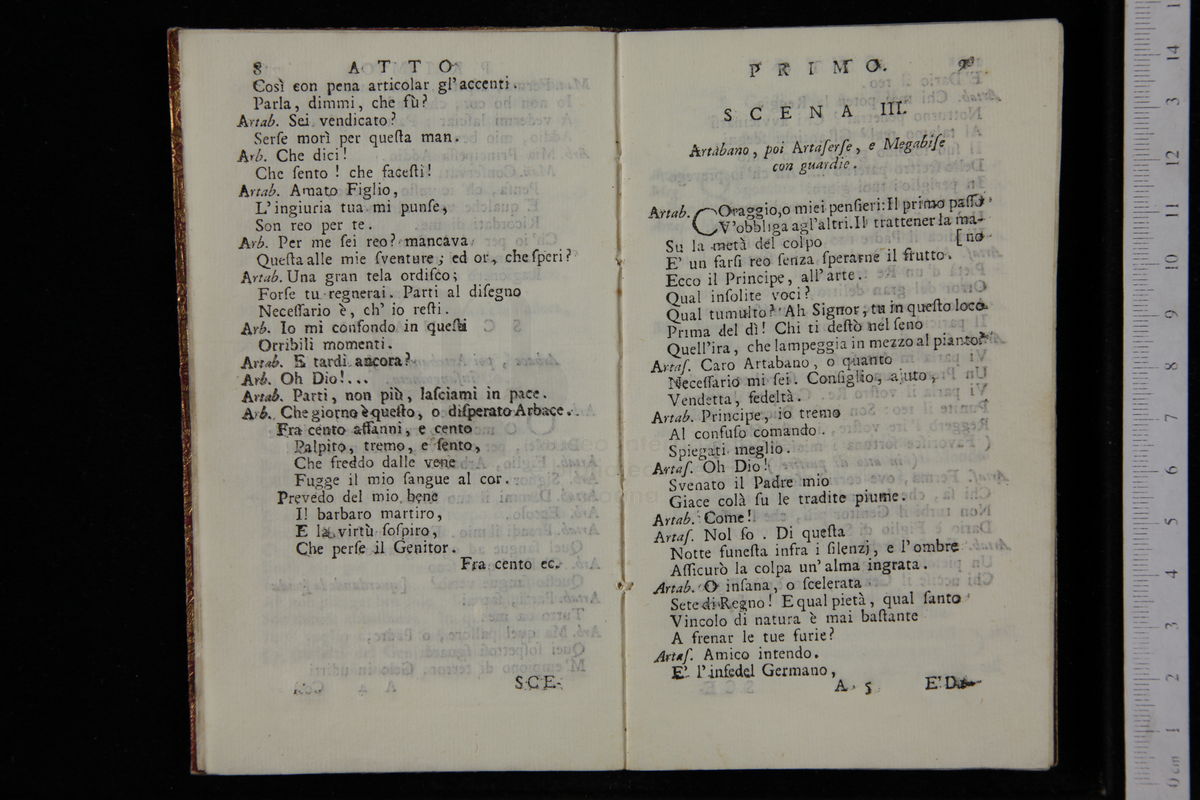 8 ATTO
Così con pena articolar gl'accenti.
Parla, dimmi, che fù?
Artab. Sei vendicato?
Serſe morì per queſta man.
Arb. Che dici!
Che ſento! che faceſti!
Artab. Amato Figlio,
L'ingiuria tua mi punſe,
Son reo per te.
Arb. Per me ſei reo? mancava
Queſta alle mie ſventure; ed or, che ſperi?
Artab. Una gran tela ordiſco;
Forſe tu regnerai. Parti al diſegno
Neceſſario è, ch'io reſti.
Arb. Io mi confondo in queſti
Orribili momenti.
Artab. E tardi ancora?
Arb. Oh Dio!...
Artab. Parti, non più, laſciami in pace.
Arb. Che giorno è queſto, o diſperato Arbace.
Fra cento affanni, e cento
Palpito, tremo, e ſento,
Che freddo dalle vene
Fugge il mio ſangue al cor.
Prevedo del mio bene
Il barbaro martiro,
E la virtù ſoſpiro,
Che perſe il Genitor.
Fra cento ec.
SCE-
PRIMO. 9
SCENA III.
Artabano, poi Artaſerſe, e Megabiſe
con guardie.
Artab. COraggio, o miei penſieri: Il primo paſſo
V'obbliga agl'altri. Il trattener la ma-
Su la metà del colpo [no
E' un farſi reo ſenza ſperarne il frutto.
Ecco il Principe, all'arte.
Qual inſolite voci?
Qual tumulto? Ah Signor, tu in queſto loco
Prima del dì! Chi ti deſtò nel ſeno
Quell'ira, che lampeggia in mezzo al pianto?
Artaſ. Caro Artabano, o quanto
Neceſſario mi ſei. Conſiglio, ajuto,
Vendetta, fedeltà.
Artab. Principe, io tremo
Al confuſo comando.
Spiegati meglio.
Artaſ. Oh Dio!
Svenato il Padre mio
Giace colà ſu le tradite piume.
Artab. Come!
Artaſ. Nol ſo. Di queſta
Notte funeſta infra i ſilenzj, e l'ombre
Aſſicurò la colpa un'alma ingrata.
Artab. O inſana, o ſcelerata
Sete di Regno! E qual pietà, qual ſanto
Vincolo di natura è mai baſtante
A frenar le tue furie?
Artaſ. Amico intendo.
E' l'infedel Germano,
A 5 E' Da-